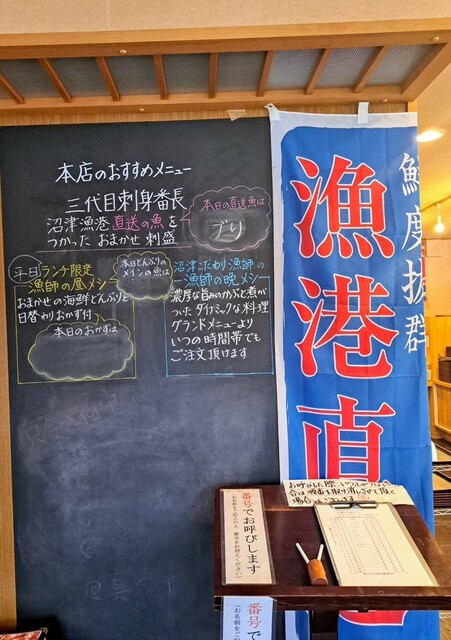 本店のおすすめメニュー
三代目刺身番長
沼津漁港直送の魚を
つかった おまかせ刺盛
本日の直送魚は
ブリ
平日ランチ限定
漁師の昼メシ
おまかせの海鮮どんぶりと
日替わりおかず付
本日どんぶりの
メインの魚は
本日のおかずは
沼津こだわり漁師の
漁師の晩メシ
濃厚な旨みのかぶと煮が
ついたダイナミックな料理
グランドメニューより
いつの時間帯でも
ご注文頂けます
鮮度抜群
漁港直
お呼びした際、いらっしゃらない
場合は順番を取り消しさせて頂く
場合がございます
番号でお呼びします
番号で